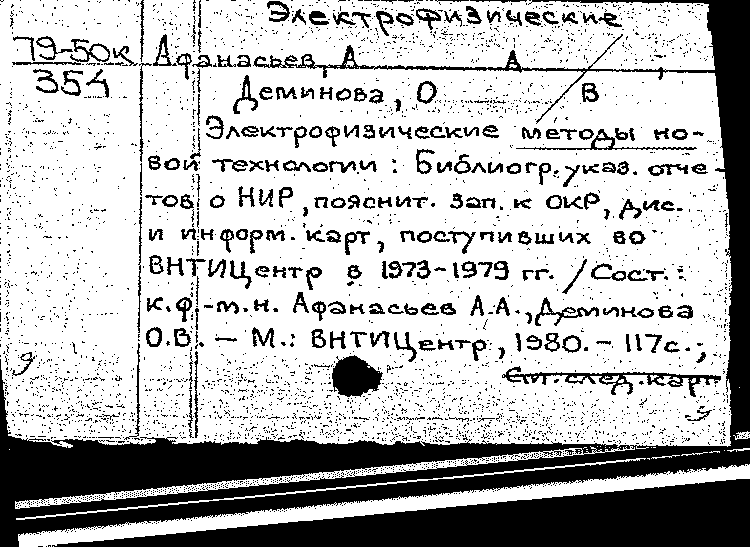 Электрофизические
79-50к Афанасьев, А А ,
354 Деминова, О В
Электрофизические методы но-
вой технологии : Библиогр. указ. отче-
тов о НИР, пояснит. зап. к ОКР, дис.
и информ. карт, поступивших во
ВНТИЦентр в 1973-1979 гг. / Сост.:
к.ф.-м.н. Афанасьев А.А., Деминова
О.В. – М.: ВНТИЦентр, 1980. – 117с.;
См. след. карт